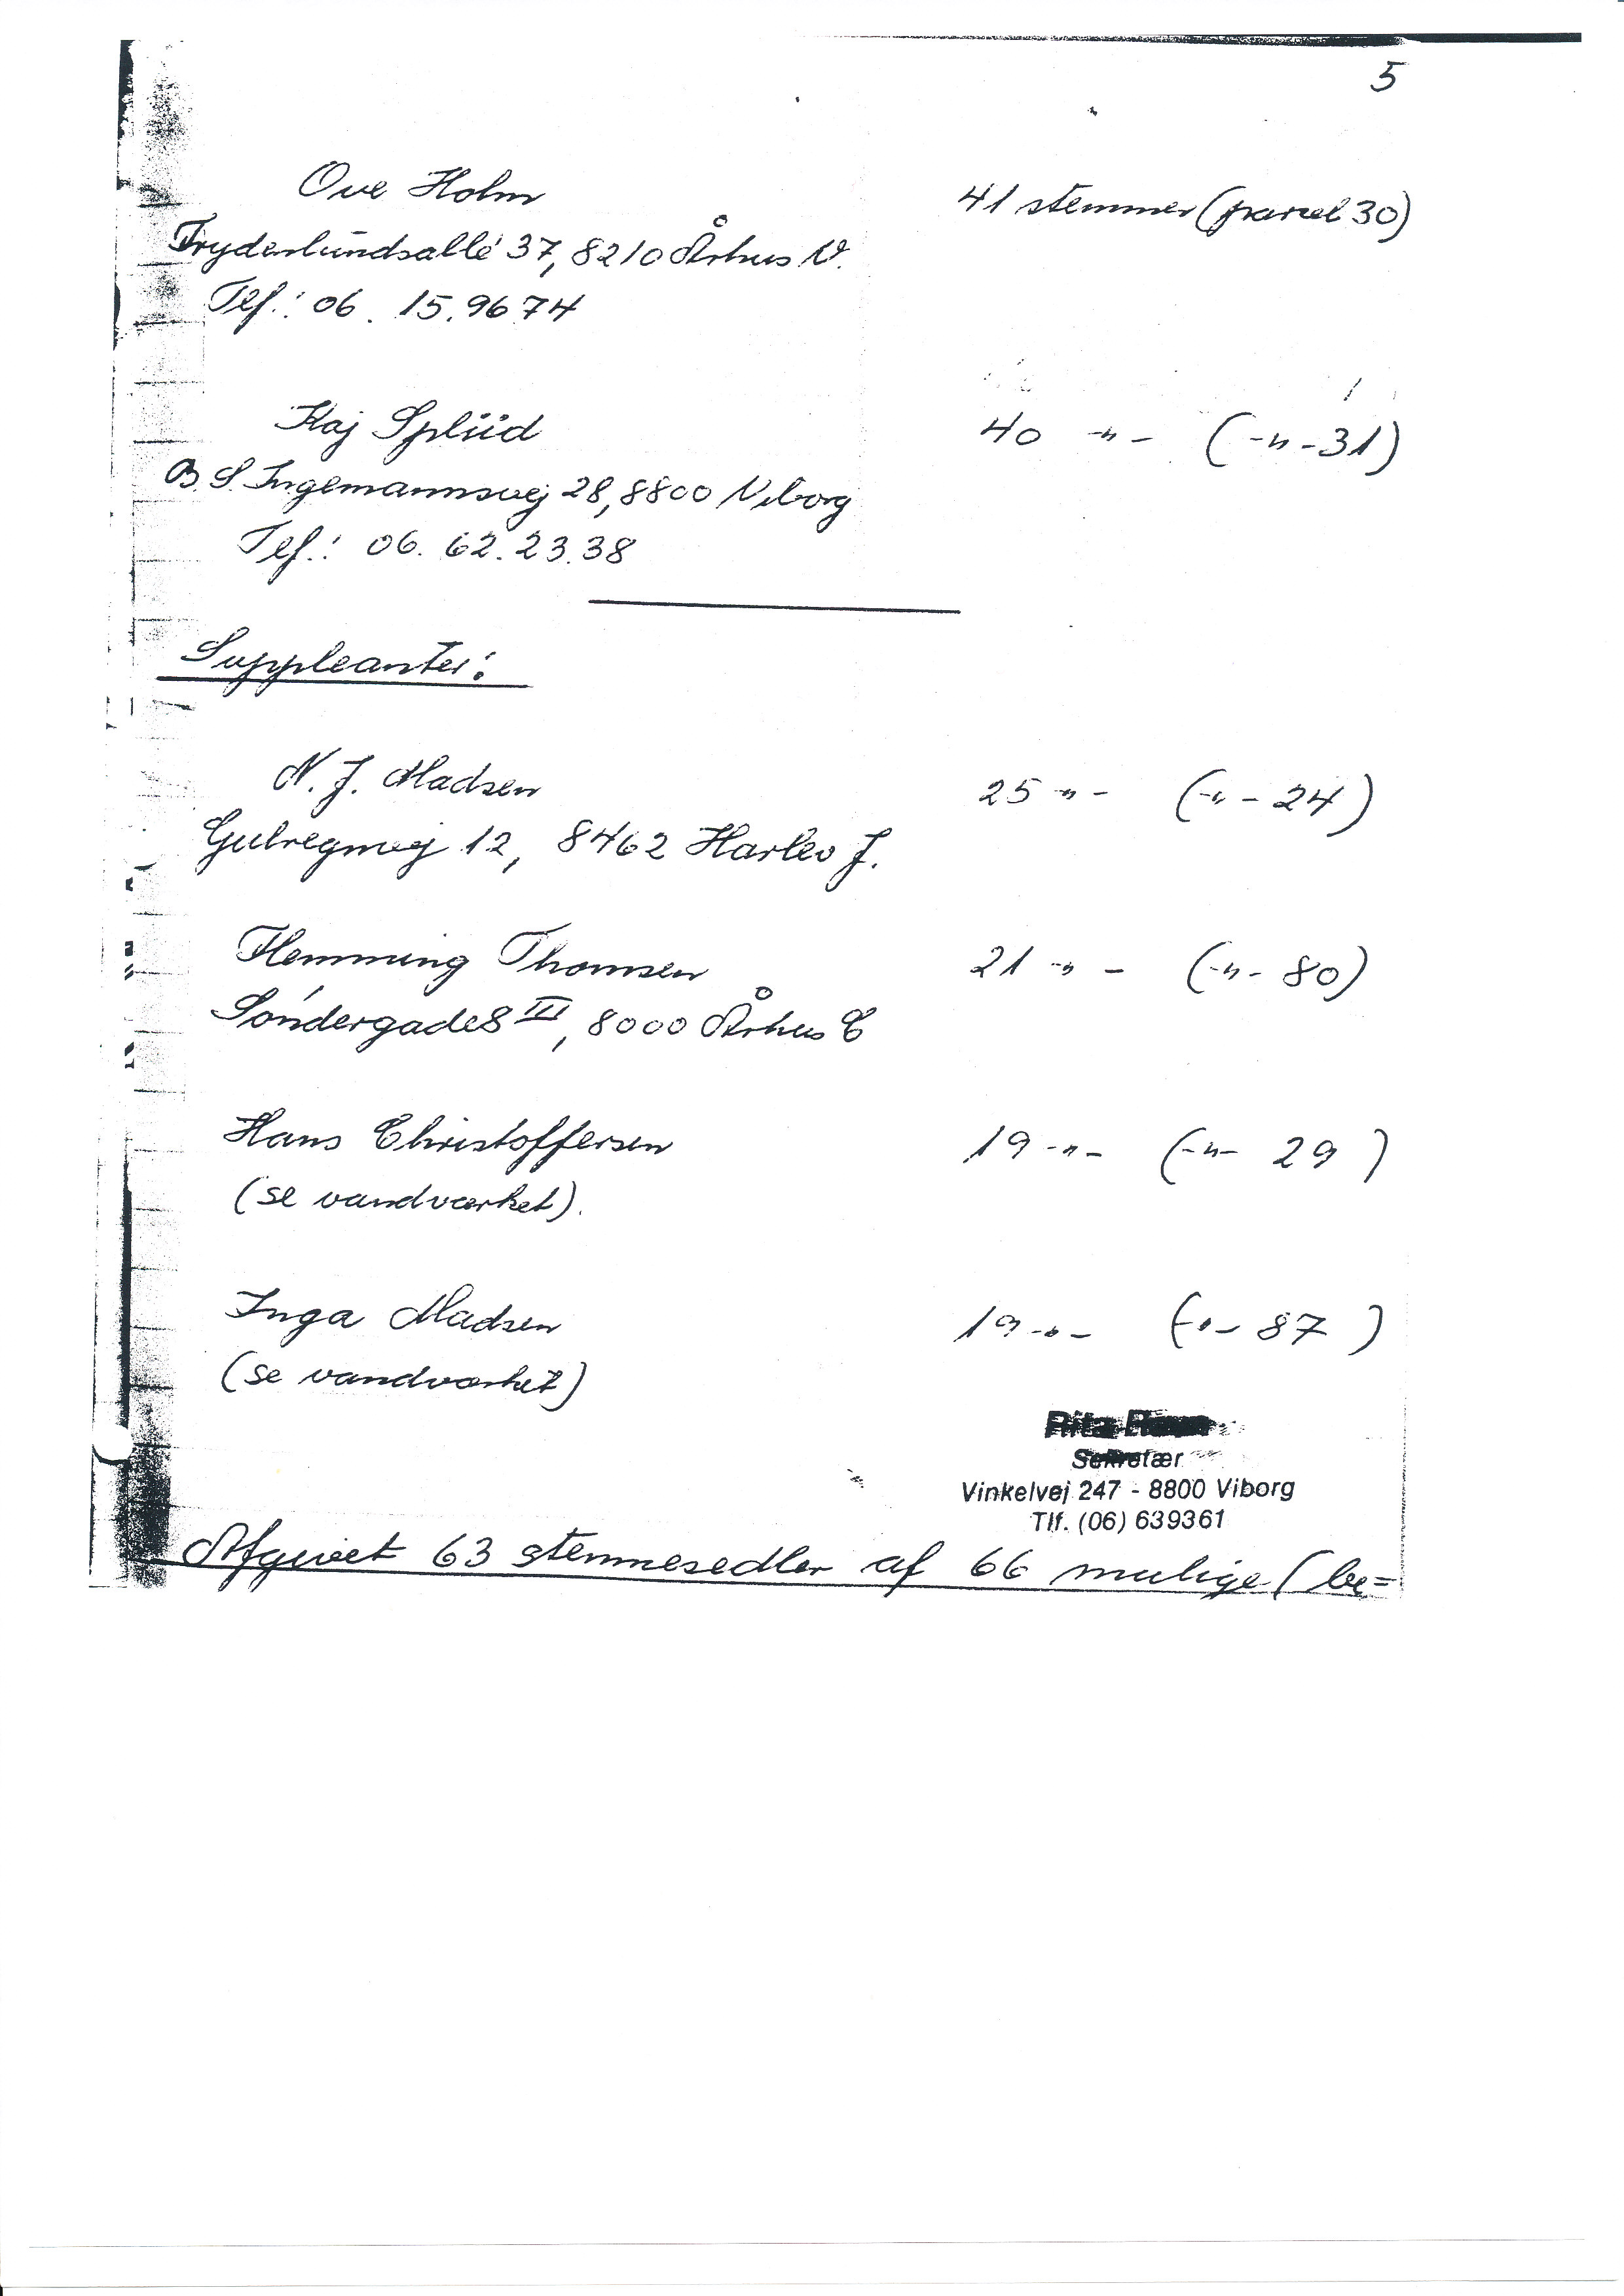 5
Ove Holm 41 stemmer (parcel 30)
Frydenlundsallé 37, 8210 Århus V.
Tlf.: 06. 15. 96 74
Kaj Splüd 40 -"- (-"- 31)
B. S. Ingemannsvej 28, 8800 Viborg
Tlf.: 06. 62. 23. 38
Suppleanter:
N. J. Madsen 25 -"- (-"- 24)
Gulregnvej 12, 8462 Harlev J.
Flemming Thomsen 21 -"- (-"- 80)
Søndergade 8 III, 8000 Århus C
Hans Christoffersen 19 -"- (-"- 29)
(se vandværket).
Inga Madsen 19 -"- (-"- 87)
(se vandværket)
Rita
Sekretær
Vinkelvej 247 - 8800 Viborg
Tlf. (06) 639361
Afgivet 63 stemmesedler af 66 mulige (be=